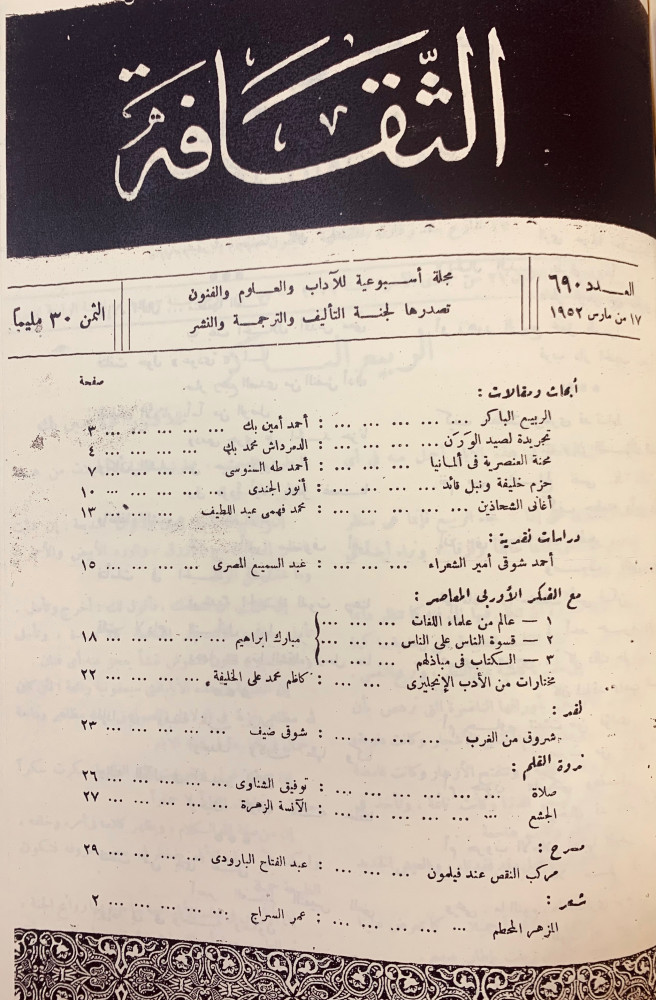 الثقافة
العدد ٦٩٠
١٧ من مارس ١٩٥٢
مجلة أسبوعية للآداب والعلوم والفنون
تصدرها لجنة التأليف والترجمة والنشر
الثمن ٣٠ مليما
صفحة
أبحاث ومقالات :
الربيع الباكر ... ... ... ... ... : أحمد أمين بك ... ... ... ... ٣
تجريدة لصيد الورن ... ... ... ... : الدمرداش محمد بك ... ... ... ٤
محنة العنصرية في ألمانيا ... ... ... : أحمد طه السنوسى ... ... ... ٧
حزم خليفة ونبل قائد ... ... ... : أنور الجندى ... ... ... ... ١٠
أغانى الشحاذين ... ... ... ... ... : محمد فهمى عبد اللطيف ... ... ١٣
دراسات نقدية :
أحمد شوقى أمير الشعراء ... ... ... : عبد السميع المصرى ... ... ... ١٥
مع الفكر الأوربى المعاصر :
١ — عالم من علماء اللغات ... ...
٢ — قسوة الناس على الناس ... ... مبارك ابراهيم ... ... ... ... ١٨
٣ — الكتاب فى مباذلهم ... ...
مختارات من الأدب الإنجليزى ... ... : كاظم محمد على الخليفة ... ... ٢٢
نقد :
شروق من الغرب ... ... ... ... : شوقى ضيف ... ... ... ... ٢٣
ندوة القلم :
صلاة ... ... ... ... ... ... : توفيق الشناوى ... ... ... ... ٢٦
الجشع ... ... ... ... ... ... : الآنسة الزهرة ... ... ... ... ٢٧
مسرح :
مركب النقص عند فيلمون ... ... ... : عبد الفتاح البارودى ... ... ... ٢٩
شعر :
المزهر المحطم ... ... ... ... ... : عمر السراج ... ... ... ... ٢